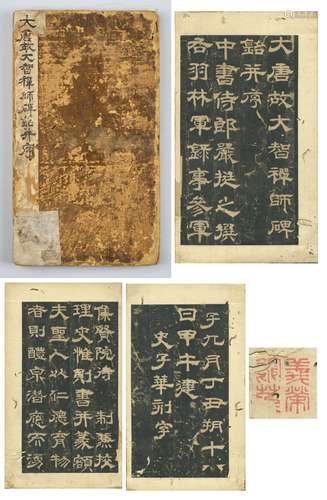 大唐故大智禪師碑銘并序
大唐故大智禪師碑
銘并序
中書侍郎嚴挺之撰
右羽林軍錄事參軍
集賢院待制兼校
理史惟則書并篆額
夫聖人以仁德育物
者則醴泉潛應
子九月丁丑朔十八
日甲午建
史子華刻字